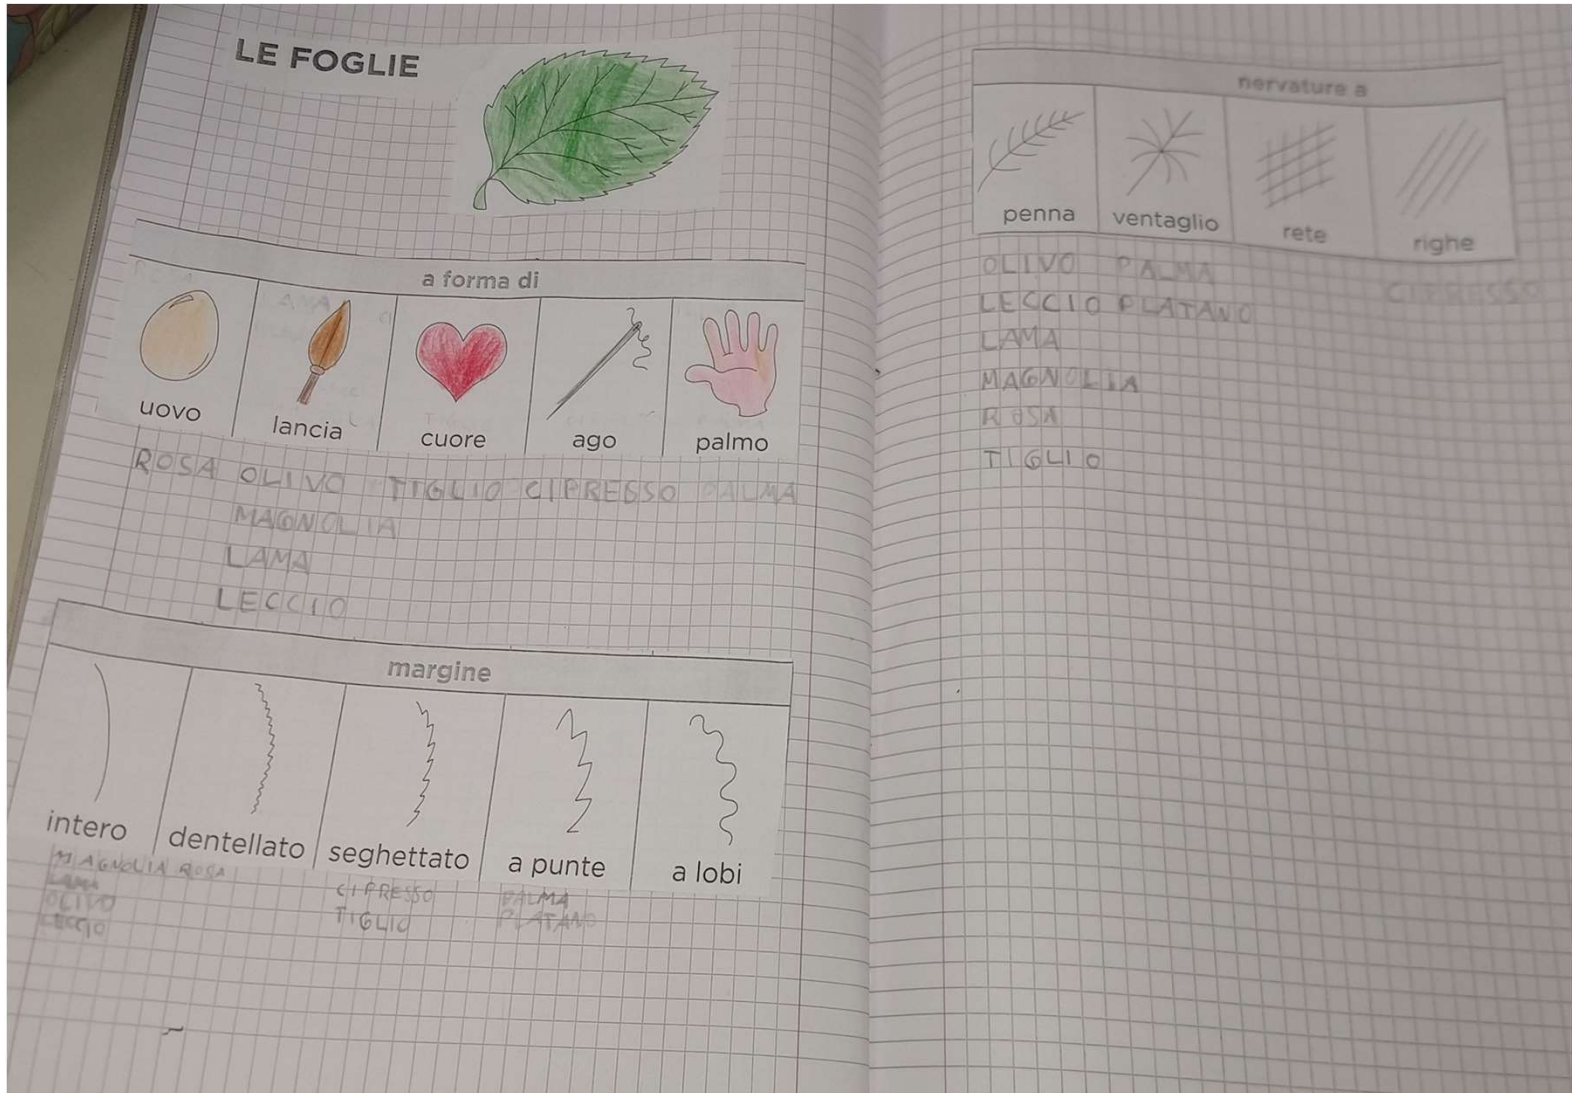 LE FOGLIE
a forma di
uovo lancia cuore ago palmo
ROSA OLIVO TIGLIO CIPRESSO PALMA
MAGNOLIA
LAMA
LECCIO
margine
intero dentellato seghettato a punte a lobi
MAGNOLIA ROSA
LAMA CIPRESSO PALMA
OLIVO TIGLIO PLATANO
LECCIO
nervature a
penna ventaglio rete righe
OLIVO PALMA CIPRESSO
LECCIO PLATANO
LAMA
MAGNOLIA
ROSA
TIGLIO